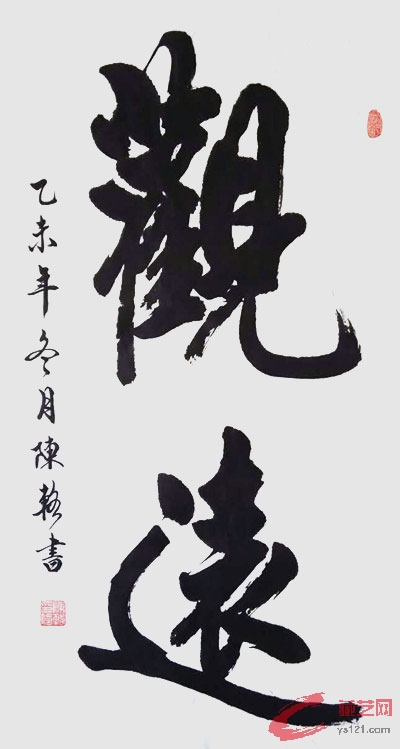 觀遠
乙未年冬月陳書
艺网
ys121.com